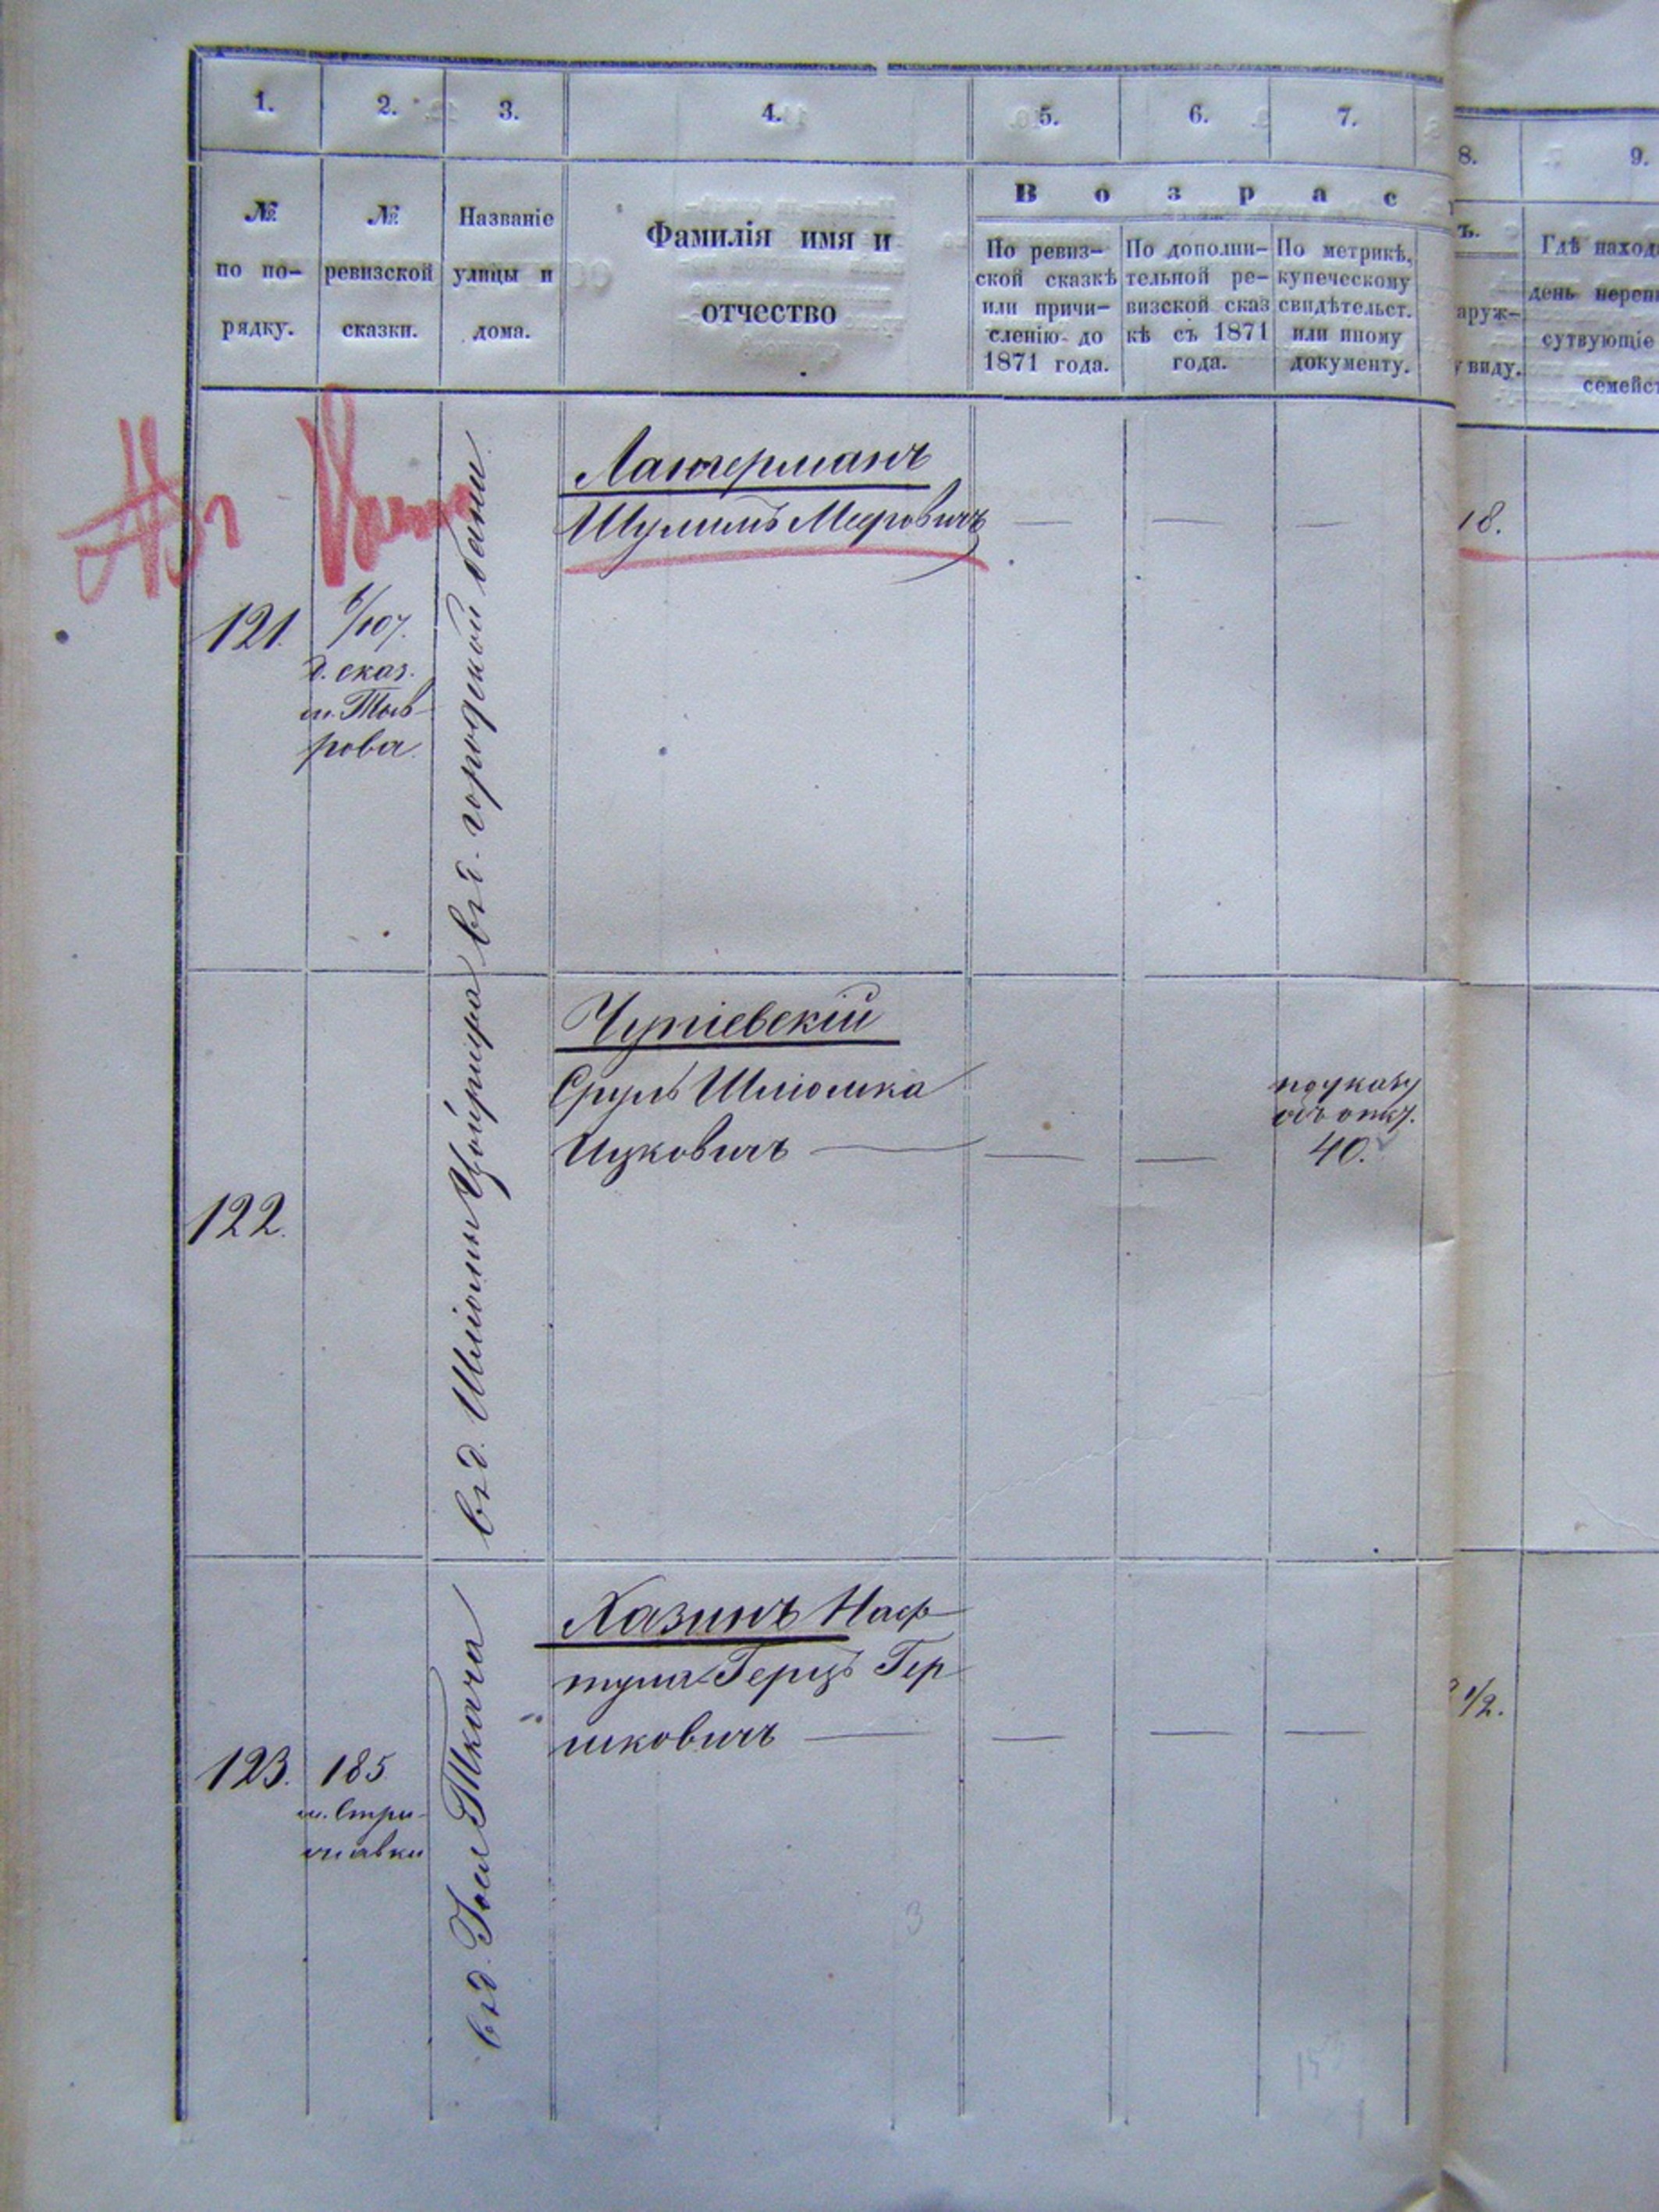 1. 2. 3. 4. 5. 6. 7. 8. 9.
№
по по-
рядку.
№
ревизской
сказки.
Названіе
улицы и
дома.
Фамилія имя и
отчество
В о з р а с
По ревиз-
ской сказкѣ
или причи-
сленію до
1871 года.
По дополни-
тельной ре-
визской сказ
кѣ съ 1871
года.
По метрикѣ,
купеческому
свидѣтельст.
или иному
документу.
ъ.
аруж-
у виду.
Гдѣ наход
день переп
сутвующіе
семейст
121.
6/107.
д. сказ.
м. Тыв-
рова
въ д. городской бани
Лангерманъ
Шулимъ Мееровичъ
— — —
18.
122.
въ д. Шліомы
Чупіевскій
Сруль Шліомка
Ицковичъ —
— —
по указу
40.
123.
185
м. Стри-
жавки
въ д. Ткача
Хазинъ Наф-
тула Герцъ Гер
шковичъ —
— — —
1/2.
3